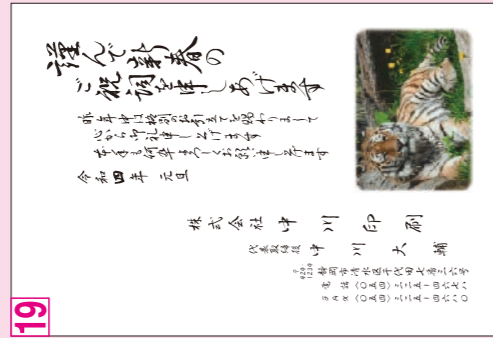 謹んで新春の
ご祝詞を申しあげます
昨年中は格別のお引立てを賜わりまして
心から御礼申し上げます
本年も何卒よろしくお願い申し上げます
令和四年 元旦
株式会社 中川印刷
代表取締役 中川大輔
静岡市清水区千代田七番三六号
電話〈〇五四〉
FAX〈〇五四〉
19